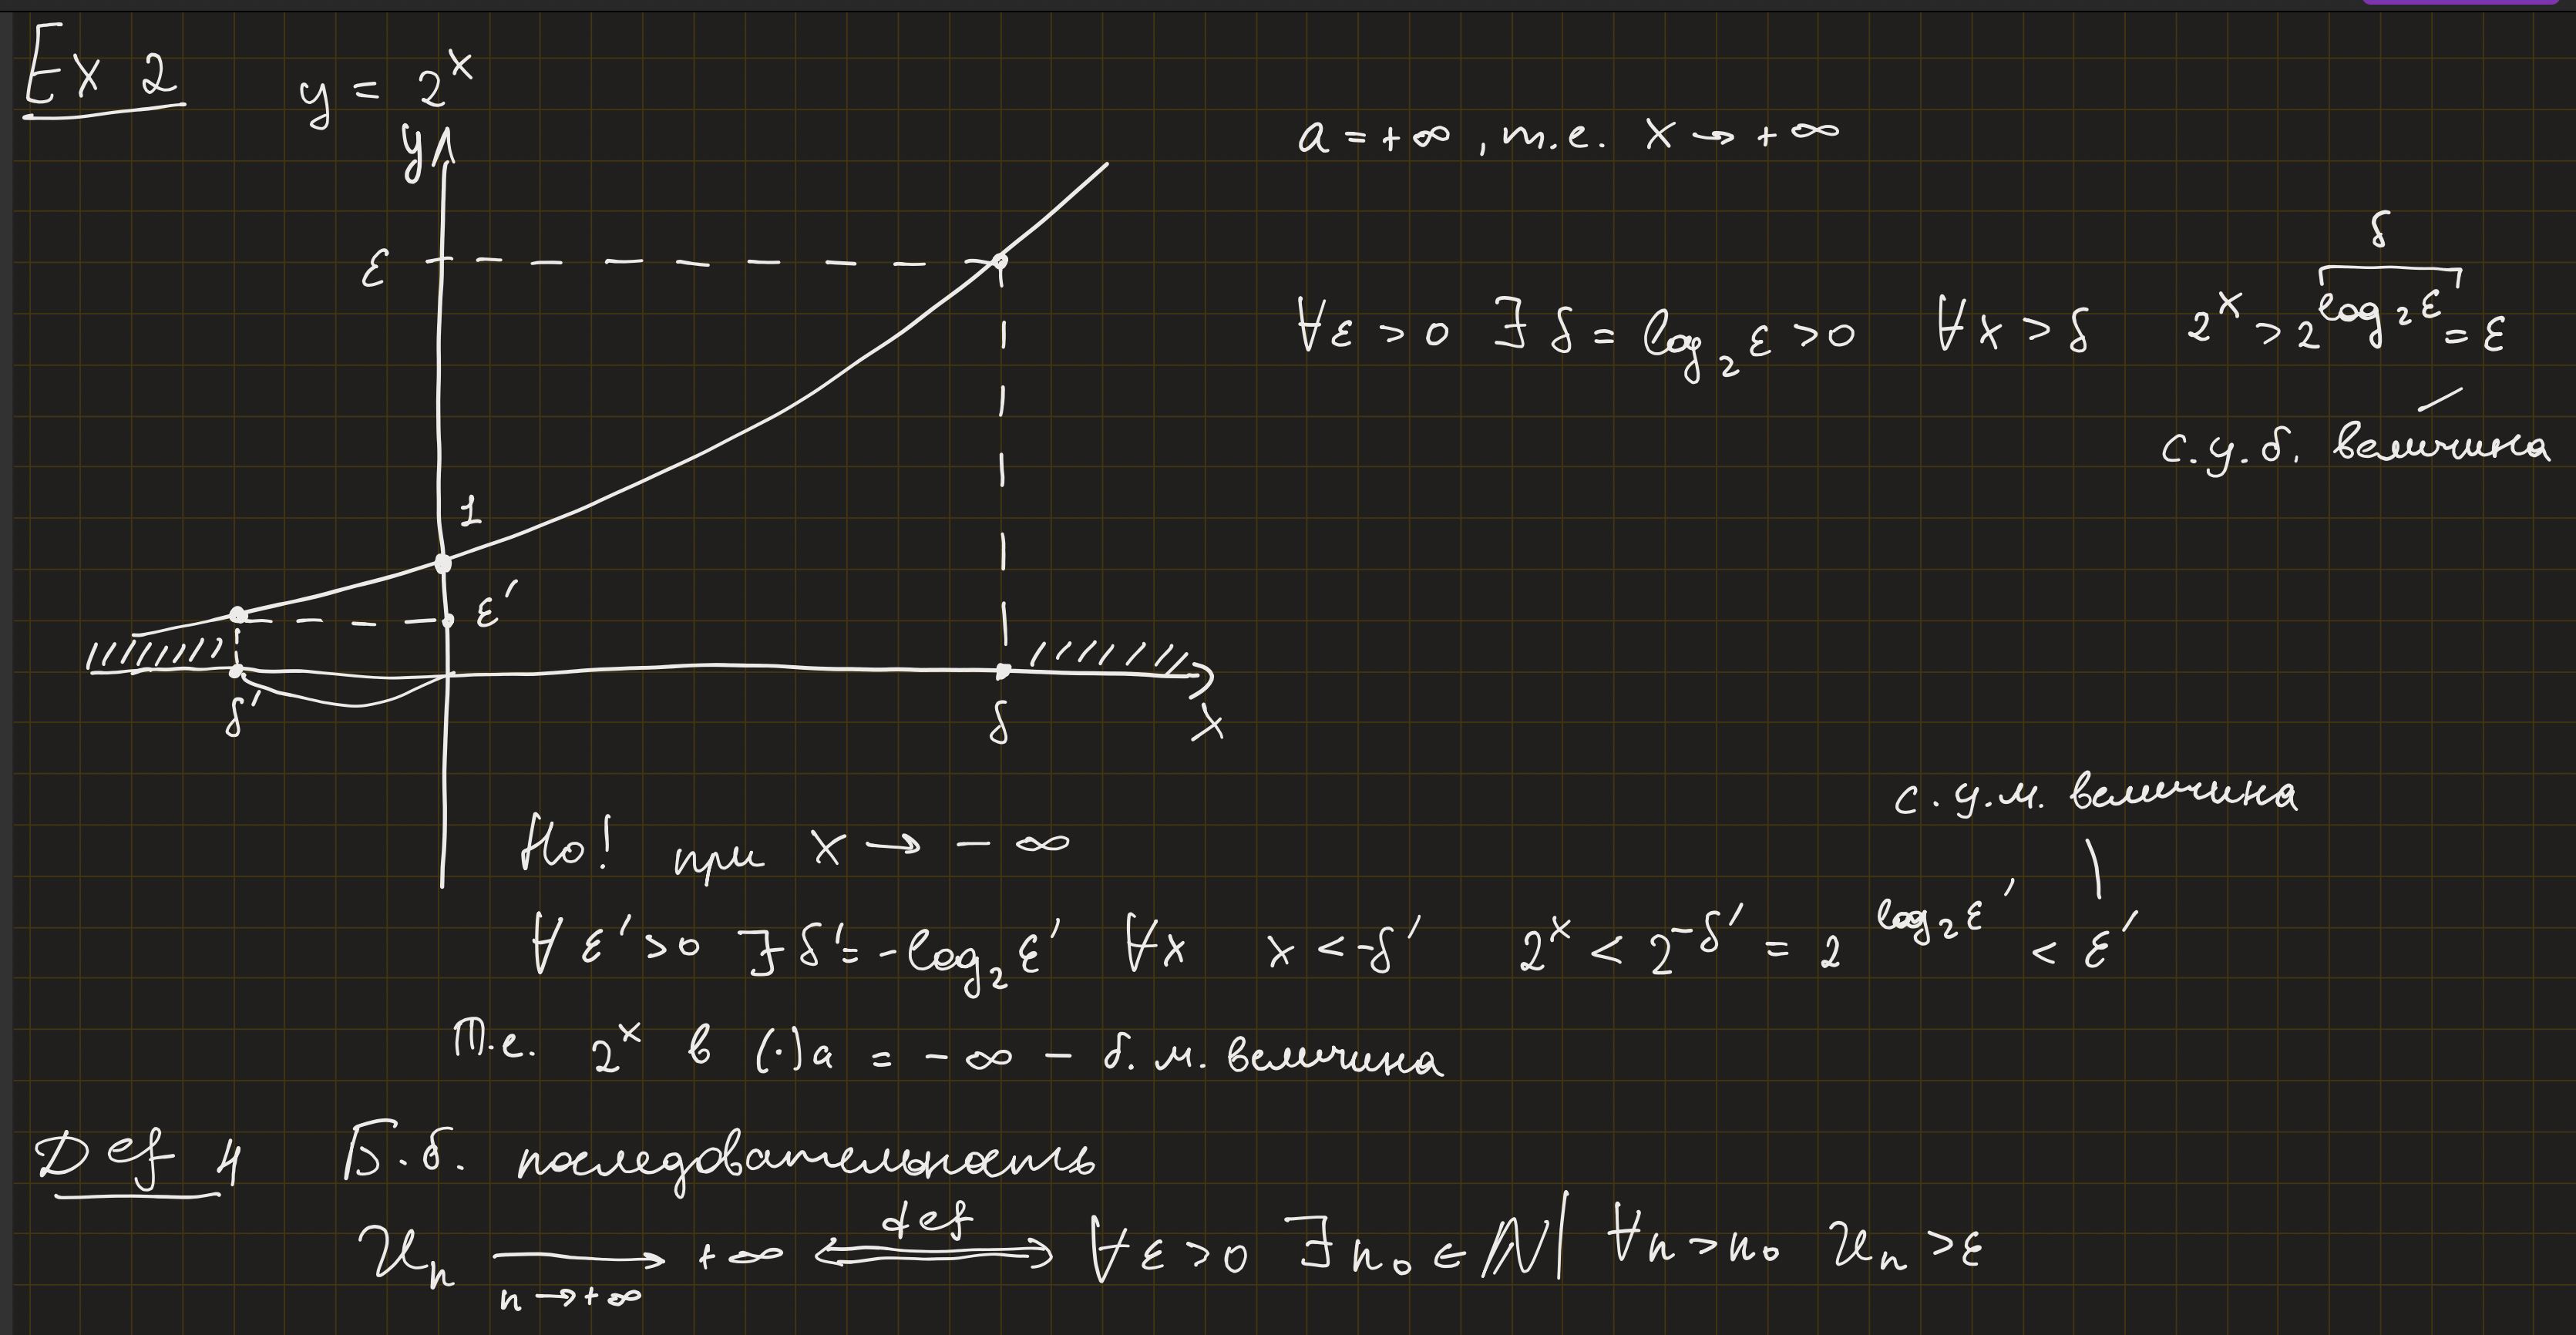 Ex 2 y = 2^x
a = +∞, т.е. x → +∞
y
ε
δ
∀ε > 0 ∃ δ = log₂ε > 0 ∀x > δ 2^x > 2^(log₂ε) = ε
с.у.б. величина
1
ε'
δ' δ x
с.у.м. величина
Но! при x → - ∞
∀ ε' > 0 ∃ δ' = -log₂ε' ∀x x < -δ' 2^x < 2^(-δ') = 2^(log₂ε') < ε'
Т.е. 2^x в (·) a = - ∞ - б.м. величина
Def 4 Б.б. последовательность
def
𝓤ₙ → +∞ ⟺ ∀ε > 0 ∃ n₀ ∈ ℕ | ∀n > n₀ 𝓤ₙ > ε
n → +∞